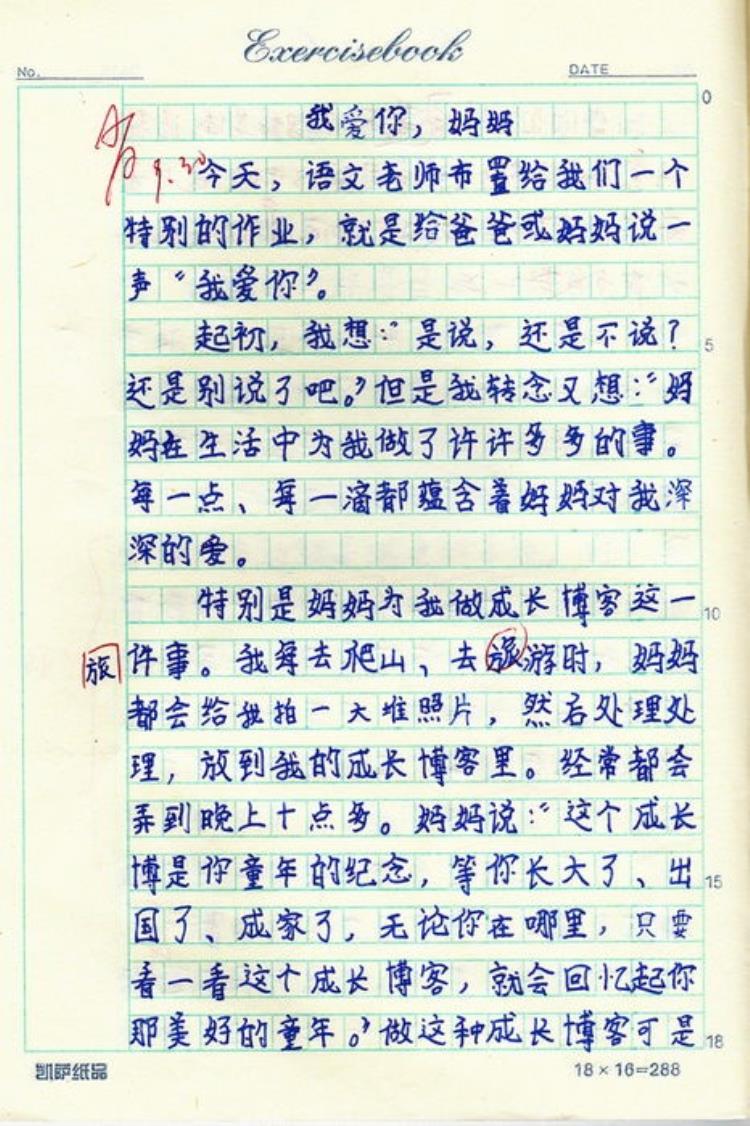 Exercisebook
No.
DATE
0
我爱你，妈妈
9.30
今天，语文老师布置给我们一个
特别的作业，就是给爸爸或妈妈说一
声“我爱你”。
起初，我想：“是说，还是不说？
5
还是别说了吧。”但是我转念又想：“妈
妈在生活中为我做了许许多多的事。
每一点、每一滴都蕴含着妈妈对我深
深的爱。
特别是妈妈为我做成长博客这一
10
旅
件事。我每去爬山、去旅游时，妈妈
都会给我拍一大堆照片，然后处理处
理，放到我的成长博客里。经常都会
弄到晚上十点多。妈妈说：“这个成长
博是你童年的纪念，等你长大了、出
15
国了、成家了，无论你在哪里，只要
看一看这个成长博客，就会回忆起你
那美好的童年。”做这种成长博客可是
18
凯萨纸品
18×16=288